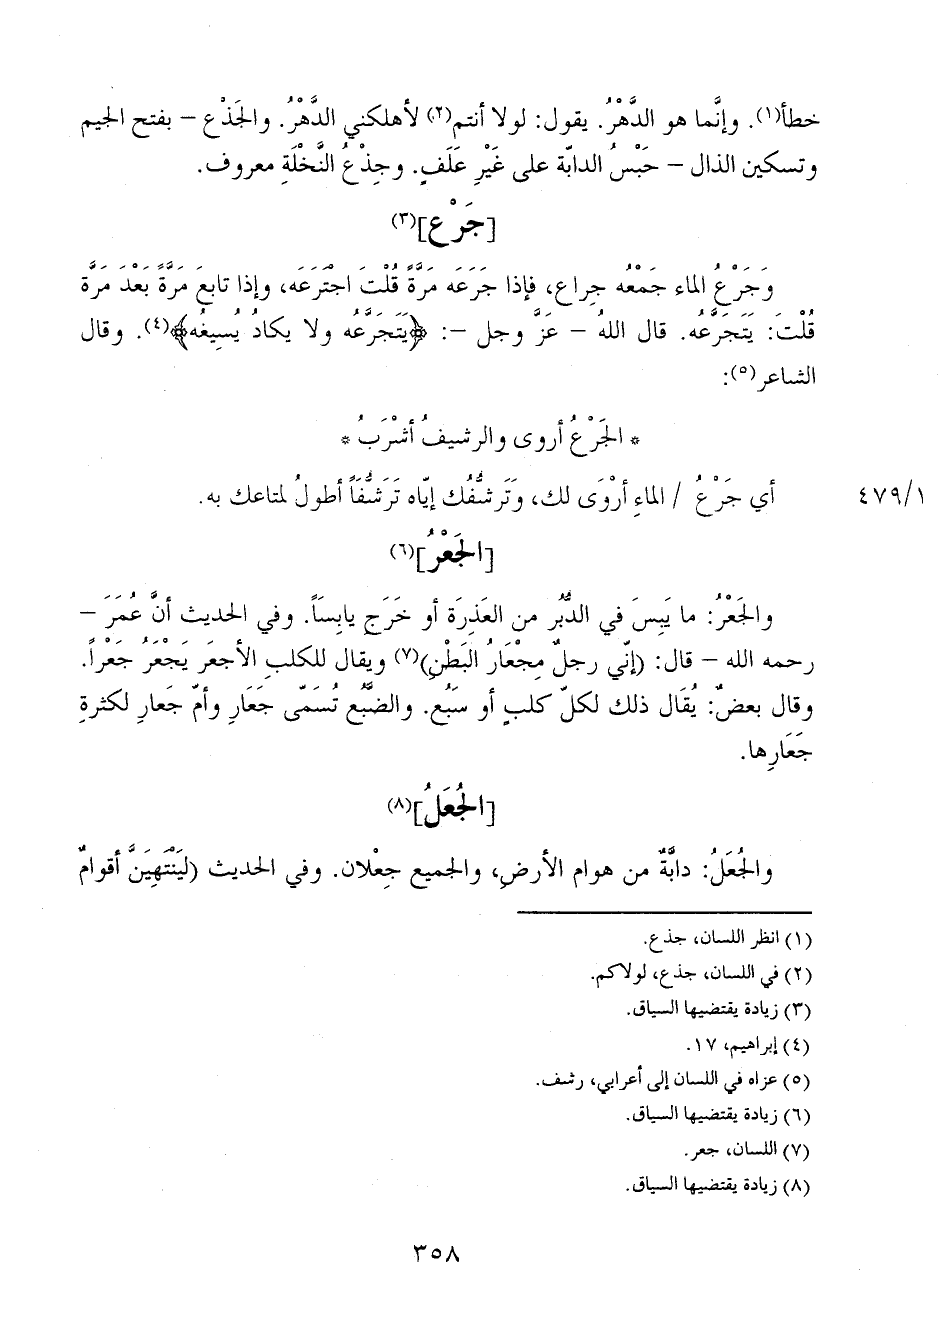 خطأ(١). وإنَّما هو الدَّهْرُ. يقول: لولا أنتم(٢) لأهلكني الدَّهْرُ. والجَذْع – بفتح الجيم
وتسكين الذال – حَبْسُ الدابّة على غَيْرِ عَلَفٍ. وجِذْعُ النَّخْلَةِ معروف.
[جَرْع](٣)
وَجَرْعُ الماء جَمْعُه جراع، فإذا جَرَعَه مَرَّةً قُلْتَ اجْتَرَعَه، وإذا تابعَ مَرَّةً بَعْدَ مَرَّة
قُلْتَ: يَتَجَرَّعُه. قال اللهُ – عَزَّ وجل –: ﴿يَتَجَرَّعُه ولا يكادُ يُسِيغُه﴾(٤). وقال
الشاعر(٥):
* الجَرْعُ أروى والرشيفُ أشْرَبُ *
أي جَرْعُ / الماءِ أرْوَى لك، وَتَرشُّفُك إيّاه تَرَشُّفَاً أطولُ لمتاعك به.
٤٧٩/١
[الجَعْرُ](٦)
والجَعْرُ: ما يَبِسَ في الدُّبُر من العَذِرَة أو خَرَج يابِسَاً. وفي الحديث أنَّ عُمَرَ –
رحمه الله – قال: (إنّي رجلٌ مِجْعَارُ البَطْنِ)(٧) ويقال للكلبِ الأجعَر يَجْعَرُ جَعْراً.
وقال بعضٌ: يُقَال ذلك لكلّ كلبٍ أو سَبُع. والضَّبُع تُسَمّى جَعَارِ وأمّ جَعارِ لكثرةِ
جَعَارِها.
[الجُعَلُ](٨)
والجُعَلُ: دابَّةٌ من هوام الأرضِ، والجميع جِعْلان. وفي الحديث (لَيَنْتَهِيَنَّ أقوامٌ
(١) انظر اللسان، جذع.
(٢) في اللسان، جذع، لولاكم.
(٣) زيادة يقتضيها السياق.
(٤) إبراهيم، ١٧.
(٥) عزاه في اللسان إلى أعرابي، رشف.
(٦) زيادة يقتضيها السياق.
(٧) اللسان، جعر.
(٨) زيادة يقتضيها السياق.
٣٥٨